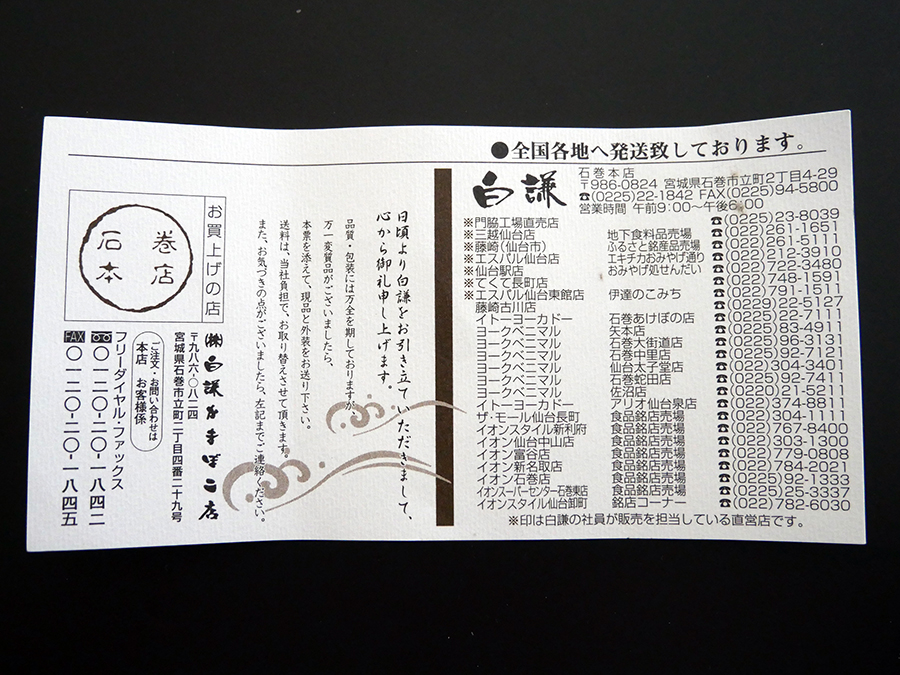 ●全国各地へ発送致しております。
白謙
石巻本店
〒986-0824 宮城県石巻市立町2丁目4-29
☎(0225)22-1842 FAX(0225)94-5800
営業時間 午前9:00〜午後6:00
※門脇工場直売店 ☎(0225)23-8039
※三越仙台店 地下食料品売場 ☎(022)261-1651
※藤崎(仙台市) ふるさと銘産品売場 ☎(022)261-5111
※エスパル仙台店 エキチカおみやげ通り ☎(022)212-3910
※仙台駅店 おみやげ処せんだい ☎(022)722-3480
※てくて長町店 ☎(022)748-1591
※エスパル仙台東館店 伊達のこみち ☎(022)791-1511
藤崎古川店 ☎(0229)22-5127
イトーヨーカドー 石巻あけぼの店 ☎(0225)22-7111
ヨークベニマル 矢本店 ☎(0225)83-4911
ヨークベニマル 石巻大街道店 ☎(0225)96-3131
ヨークベニマル 石巻中里店 ☎(0225)92-7121
ヨークベニマル 仙台太子堂店 ☎(022)304-3401
ヨークベニマル 石巻蛇田店 ☎(0225)92-7411
ヨークベニマル 佐沼店 ☎(0220)21-5211
イトーヨーカドー アリオ仙台泉店 ☎(022)374-8811
ザ・モール仙台長町 食品銘店売場 ☎(022)304-1111
イオンスタイル新利府 食品銘店売場 ☎(022)767-8400
イオン仙台中山店 食品銘店売場 ☎(022)303-1300
イオン富谷店 食品銘店売場 ☎(022)779-0808
イオン新名取店 食品銘店売場 ☎(022)784-2021
イオン石巻店 食品銘店売場 ☎(0225)92-1333
イオンスーパーセンター石巻東店 食品銘店売場 ☎(0225)25-3337
イオンスタイル仙台卸町 銘店コーナー ☎(022)782-6030
※印は白謙の社員が販売を担当している直営店です。
日頃より白謙をお引き立ていただきまして、
心から御礼申し上げます。
品質・包装には万全を期しておりますが、
万一変質品がございましたら、
本票を添えて、現品と外装をお送り下さい。
送料は、当社負担で、お取り替えさせて頂きます。
また、お気づきの点がございましたら、左記までご連絡ください。
お買上げの店
石巻
本店
㈱白謙蒲鉾店
〒九八六-〇八二四
宮城県石巻市立町二丁目四番二十九号
ご注文・お問い合わせは
本店 お客様係
フリーダイヤル・ファックス
〇一二〇-二〇-一八四二
FAX 〇一二〇-二〇-一八四五